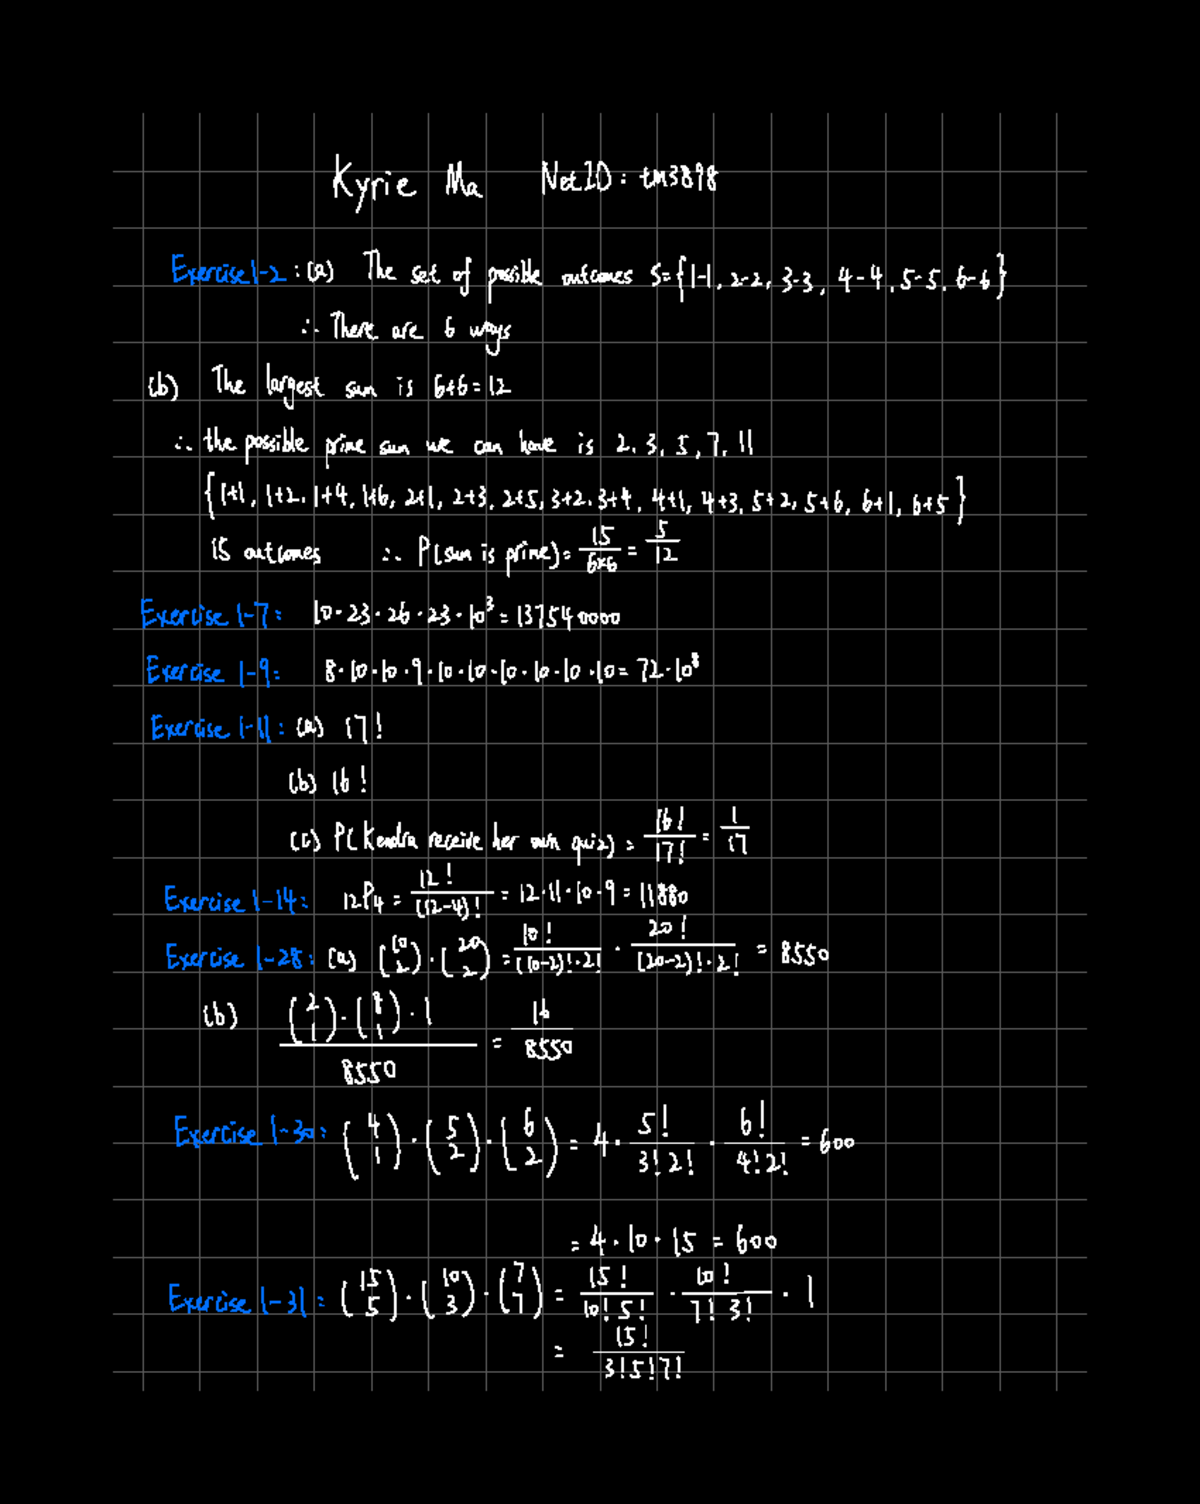 Kyrie Ma NetID: tm3898
Exercise 1-2: (a) The set of possible outcomes S={1-1, 2-2, 3-3, 4-4, 5-5, 6-6}
∴ There are 6 ways
(b) The largest sum is 6+6=12
∴ the possible prime sum we can have is 2, 3, 5, 7, 11
{1+1, 1+2, 1+4, 1+6, 2+1, 2+3, 2+5, 3+2, 3+4, 4+1, 4+3, 5+2, 5+6, 6+1, 6+5}
15 outcomes ∴ P(sum is prime) = 15/6×6 = 5/12
Exercise 1-7: 10·23·26·23·10³ = 137540000
Exercise 1-9: 8·10·10·9·10·10·10·10·10·10 = 72·10⁸
Exercise 1-11: (a) 17!
(b) 16!
(c) P(Kendra receive her own quiz) = 16!/17! = 1/17
Exercise 1-14: 12P4 = 12!/(12-4)! = 12·11·10·9 = 11880
Exercise 1-28: (a) (10 2)·(20 2) = 10!/(10-2)!·2! · 20!/(20-2)!·2! = 8550
(b) (2 1)·(8 1)·1/8550 = 16/8550
Exercise 1-30: (4 1)·(5 2)·(6 2) = 4·5!/3!2!·6!/4!2! = 600
= 4·10·15 = 600
Exercise 1-31: (15 5)·(10 3)·(7 7) = 15!/10!5!·10!/7!3!·1
= 15!/3!5!7!